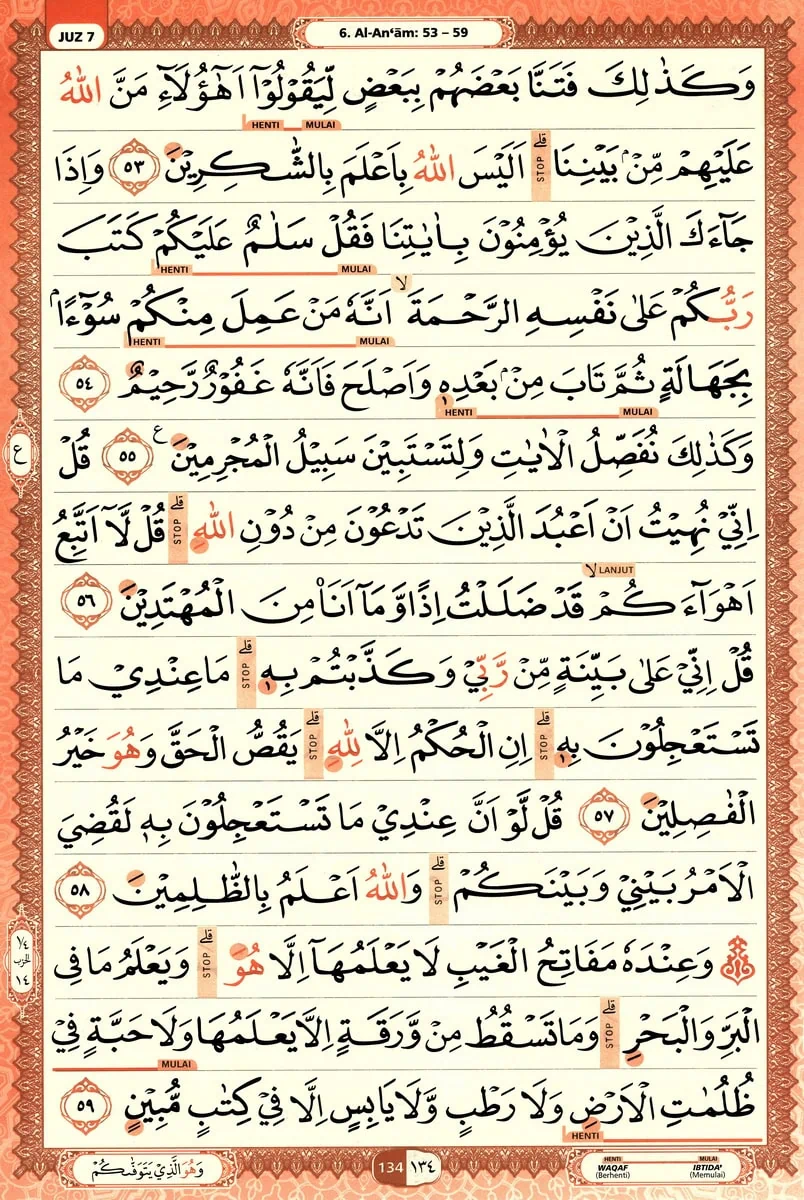 JUZ 7
6. Al-An‘ām: 53 – 59
وَكَذٰلِكَ فَتَنَّا بَعْضَهُمْ بِبَعْضٍ لِّيَقُوْلُوْٓا اَهٰٓؤُلَاۤءِ مَنَّ اللّٰهُ
HENTI MULAI
عَلَيْهِمْ مِّنْۢ بَيْنِنَا ۗ STOP اَلَيْسَ اللّٰهُ بِاَعْلَمَ بِالشّٰكِرِيْنَ ٥٣ وَاِذَا
جَاۤءَكَ الَّذِيْنَ يُؤْمِنُوْنَ بِاٰيٰتِنَا فَقُلْ سَلٰمٌ عَلَيْكُمْ كَتَبَ
HENTI MULAI
رَبُّكُمْ عَلٰى نَفْسِهِ الرَّحْمَةَ ۙ اَنَّهٗ مَنْ عَمِلَ مِنْكُمْ سُوْۤءًاۢ
HENTI MULAI
بِجَهَالَةٍ ثُمَّ تَابَ مِنْۢ بَعْدِهٖ وَاَصْلَحَ فَاَنَّهٗ غَفُوْرٌ رَّحِيْمٌ ٥٤
HENTI MULAI
وَكَذٰلِكَ نُفَصِّلُ الْاٰيٰتِ وَلِتَسْتَبِيْنَ سَبِيْلُ الْمُجْرِمِيْنَ ࣖ ٥٥ قُلْ
ع
اِنِّيْ نُهِيْتُ اَنْ اَعْبُدَ الَّذِيْنَ تَدْعُوْنَ مِنْ دُوْنِ اللّٰهِ ۗ STOP قُلْ لَّآ اَتَّبِعُ
LANJUT
اَهْوَاۤءَكُمْ ۙ قَدْ ضَلَلْتُ اِذًا وَّمَآ اَنَا۠ مِنَ الْمُهْتَدِيْنَ ٥٦
قُلْ اِنِّيْ عَلٰى بَيِّنَةٍ مِّنْ رَّبِّيْ وَكَذَّبْتُمْ بِهٖ ۗ STOP مَا عِنْدِيْ مَا
تَسْتَعْجِلُوْنَ بِهٖ ۗ STOP اِنِ الْحُكْمُ اِلَّا لِلّٰهِ ۗ STOP يَقُصُّ الْحَقَّ وَهُوَ خَيْرُ
الْفٰصِلِيْنَ ٥٧ قُلْ لَّوْ اَنَّ عِنْدِيْ مَا تَسْتَعْجِلُوْنَ بِهٖ لَقُضِيَ
الْاَمْرُ بَيْنِيْ وَبَيْنَكُمْ ۗ STOP وَاللّٰهُ اَعْلَمُ بِالظّٰلِمِيْنَ ٥٨
١/٤ الحزب ١٤
۞ وَعِنْدَهٗ مَفَاتِحُ الْغَيْبِ لَا يَعْلَمُهَآ اِلَّا هُوَ ۗ STOP وَيَعْلَمُ مَا فِى
الْبَرِّ وَالْبَحْرِ ۗ STOP وَمَا تَسْقُطُ مِنْ وَّرَقَةٍ اِلَّا يَعْلَمُهَا وَلَا حَبَّةٍ فِيْ
MULAI
ظُلُمٰتِ الْاَرْضِ وَلَا رَطْبٍ وَّلَا يَابِسٍ اِلَّا فِيْ كِتٰبٍ مُّبِيْنٍ ٥٩
HENTI
وَهُوَ الَّذِيْ يَتَوَفّٰىكُمْ
134 ١٣٤
HENTI MULAI
WAQAF IBTIDA'
(Berhenti) (Memulai)